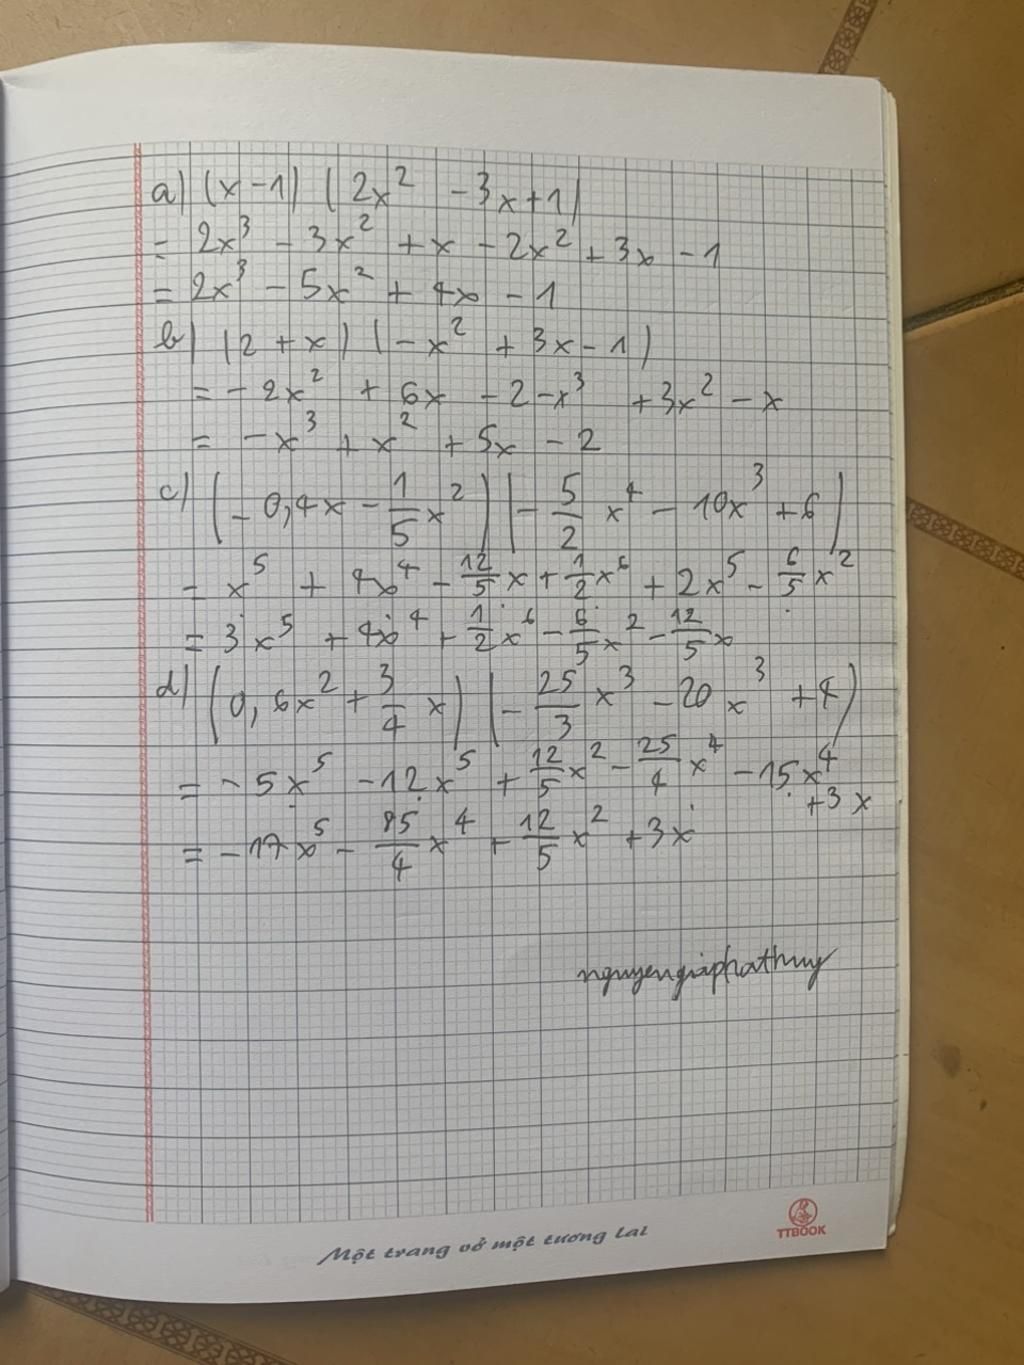 a) (x - 1) (2x² - 3x + 1)
= 2x³ - 3x² + x - 2x² + 3x - 1
= 2x³ - 5x² + 4x - 1
b) (2 + x) (-x² + 3x - 1)
= -2x² + 6x - 2 - x³ + 3x² - x
= -x³ + x² + 5x - 2
c) (-0,4x - 1/5 x²) (-5/2 x⁴ - 10x³ + 6)
= x⁵ + 4x⁴ - 12/5 x + 1/2 x⁶ + 2x⁵ - 6/5 x²
= 3x⁵ + 4x⁴ + 1/2 x⁶ - 6/5 x² - 12/5 x
d) (0,6x² + 3/4 x) (-25/3 x³ - 20x³ + 4)
= -5x⁵ - 12x⁵ + 12/5 x² - 25/4 x⁴ - 15x⁴
+3x
= -17x⁵ - 85/4 x⁴ + 12/5 x² + 3x
nguyengiaphathuy
Một trang vở một tương lai
TTBOOK